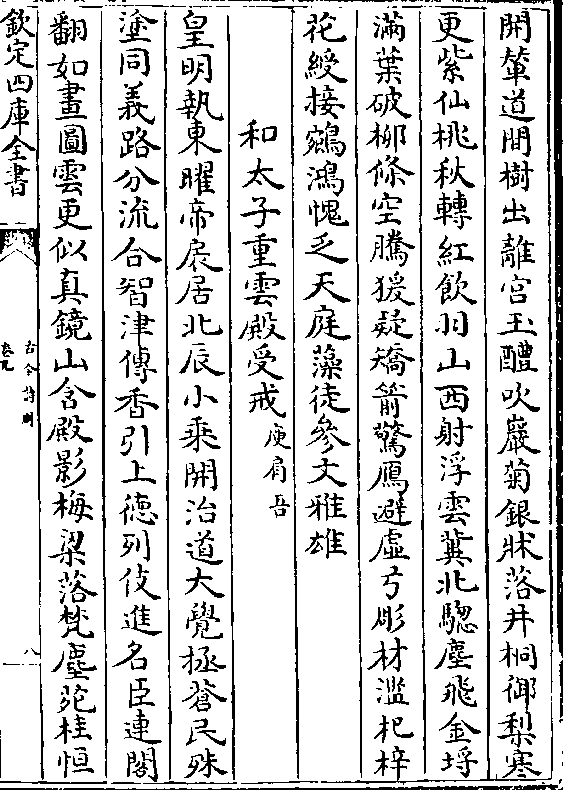 開輦道間樹出離宫玉醴吹巖菊銀牀落井桐御梨寒
更紫仙桃秋轉紅飲羽山西射浮雲冀北驄塵飛金埒
滿葉破柳條空騰猨疑矯箭驚鴈避虚弓彫材濫杞梓
花綬接鵷鴻愧乏天庭藻徒參文雅雄
和太子重雲殿受戒庾肩吾
皇明執東曜帝扆居北辰小乗開治道大覺拯蒼民殊
塗同義路分流合智津傳香引上德列伎進名臣連閣
翻如畫圖雲更似真鏡山含殿影梅梁落梵塵苑桂恒
欽定四庫全書
古今詩刪
卷九
八